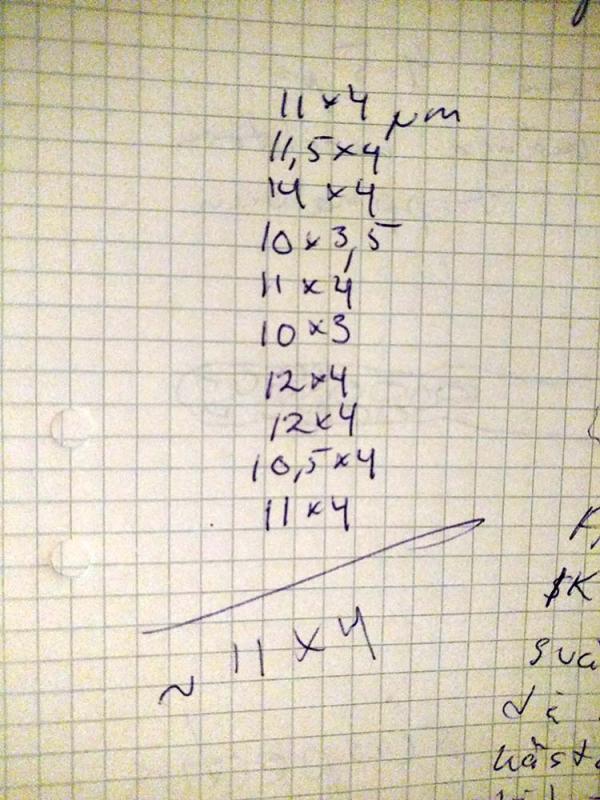 11 x 4 µm
11,5 x 4
14 x 4
10 x 3,5
11 x 4
10 x 3
12 x 4
12 x 4
10,5 x 4
11 x 4
~ 11 x 4